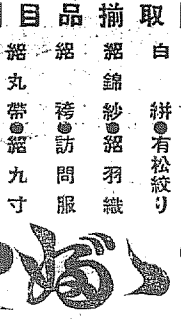 取揃品目
白絣●有松絞り
絽錦紗●絽羽織
絽袴●訪問服
絽丸帯●絽九寸